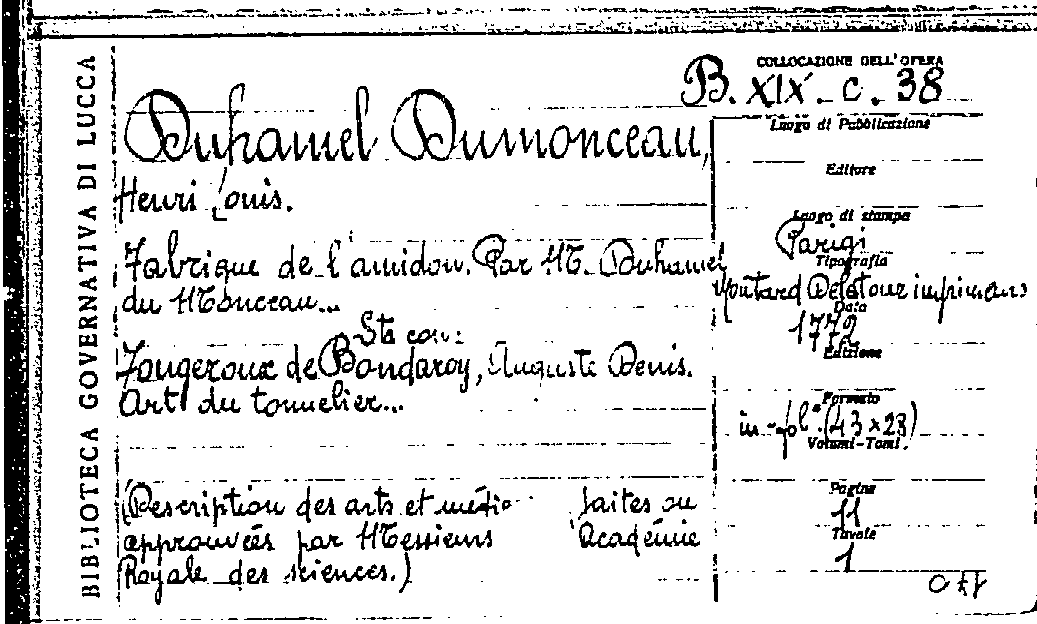 BIBLIOTECA GOVERNATIVA DI LUCCA
COLLOCAZIONE DELL'OPERA
B. XIX. c. 38
Duhamel Dumonceau,
Henri Louis.
Fabrique de l'amidon. Par M. Duhamel
du Monceau...
Sta con:
Fougeroux de Bondaroy, Auguste Denis.
Art du tonnelier...
(Description des arts et métie faites ou
approuvées par Messieurs Académie
Royale des sciences.)
Luogo di Pubblicazione
Editore
Luogo di stampa
Parigi
Tipografia
Moutard Delatour imprimeurs
Data
1772
Edizione
Formato
in-fol° (43×28)
Volumi-Tomi.
Pagine
11
Tavole
1